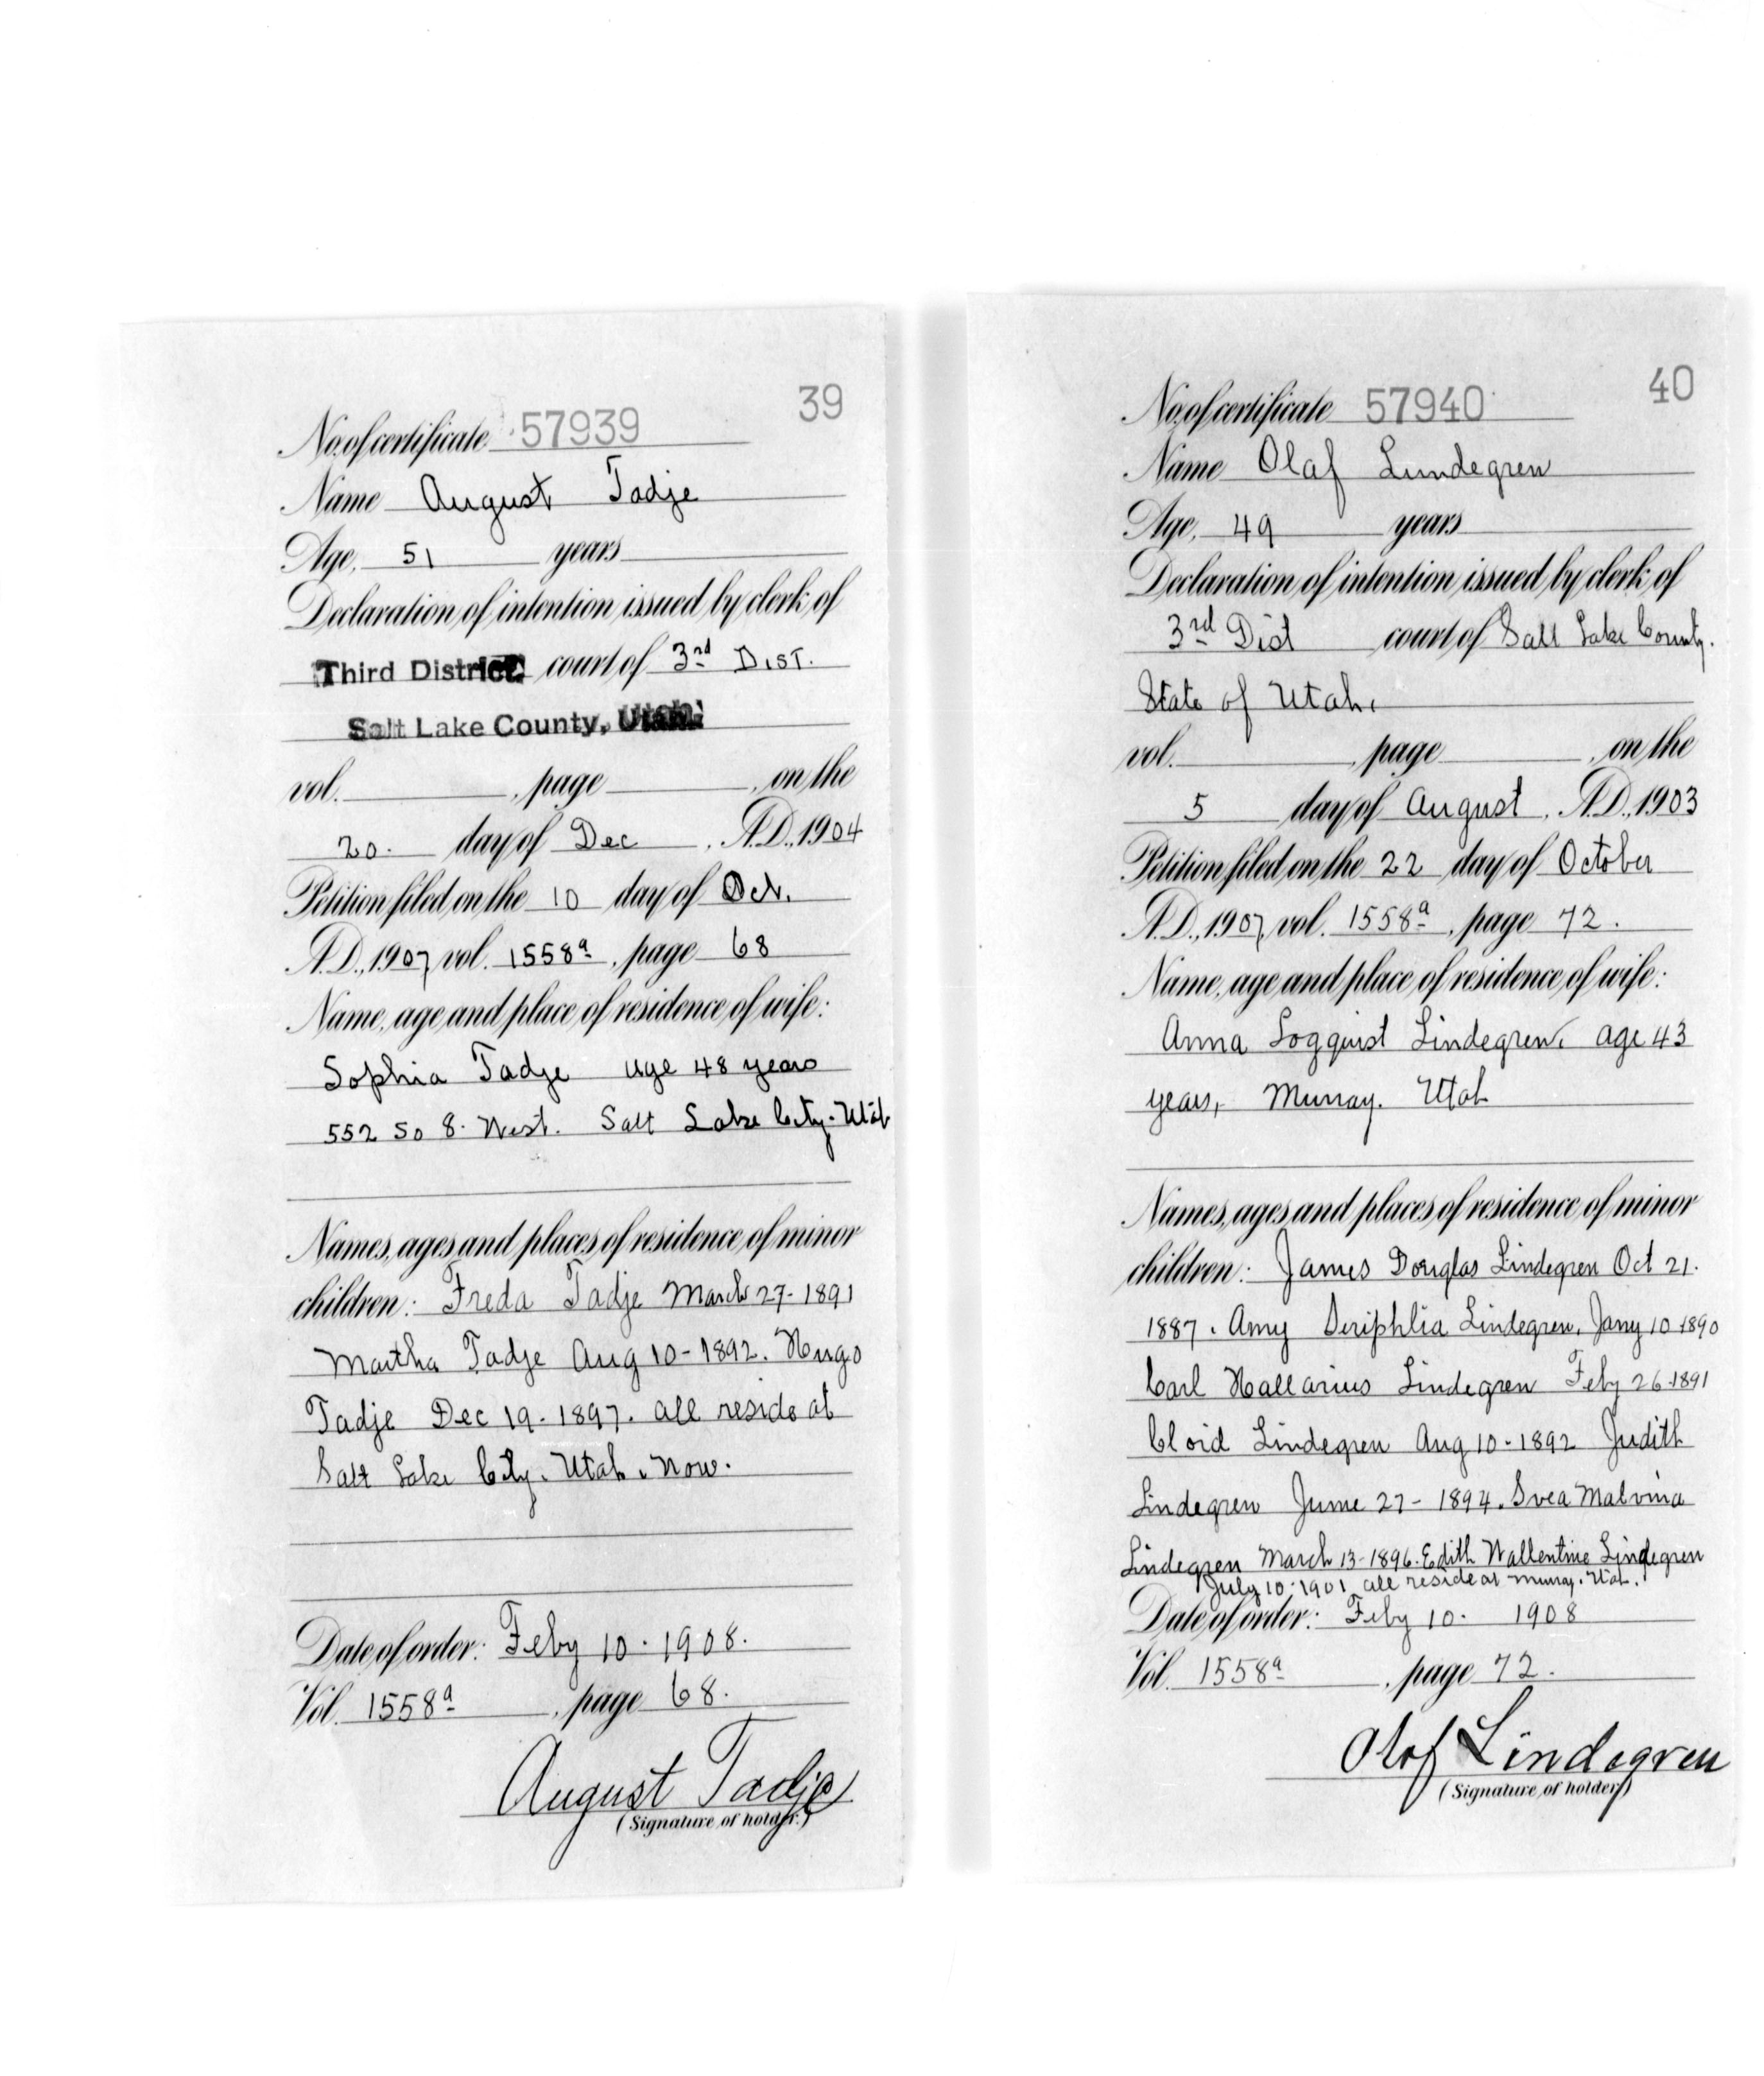 39
No. of certificate 57939
Name August Tadje
Age, 51 years
Declaration of intention issued by clerk of
Third District court of 3rd DIST.
Salt Lake County, Utah.
vol. , page , on the
20. day of Dec , A.D., 1904
Petition filed on the 10 day of Oct.
A.D., 1907, vol. 1558a, page 68
Name, age and place of residence of wife:
Sophia Tadje age 48 years
552 So 8. West. Salt Lake City. Utah
Names, ages and places of residence of minor
children: Freda Tadje March 27-1891
Martha Tadje Aug 10-1892. Hugo
Tadje Dec 19-1897. all reside at
Salt Lake City. Utah. Now.
Date of order: Feby 10-1908.
Vol. 1558a, page 68.
August Tadje
(Signature of holder.)
40
No. of certificate 57940
Name Olaf Lundegren
Age, 49 years
Declaration of intention issued by clerk of
3rd Dist court of Salt Lake County.
State of Utah.
vol. , page , on the
5 day of August, A.D., 1903
Petition filed on the 22 day of October
A.D., 1907, vol. 1558a, page 72.
Name, age and place of residence of wife:
Anna Lindegren, age 43
years, Murray. Utah
Names, ages and places of residence of minor
children: James Douglas Lindegren Oct 21.
1887. Amy Lindegren, Jany 10-1890
Carl Lindegren Feby 26-1891
Cloid Lindegren Aug 10-1892 Judith
Lindegren June 27-1894. Svea Malvina
Lindegren March 13-1896. Edith Wallentine Lindegren
July 10-1901 all reside at Murray. Utah.
Date of order: Feby 10. 1908
Vol. 1558a, page 72.
Olof Lindegren
(Signature of holder)